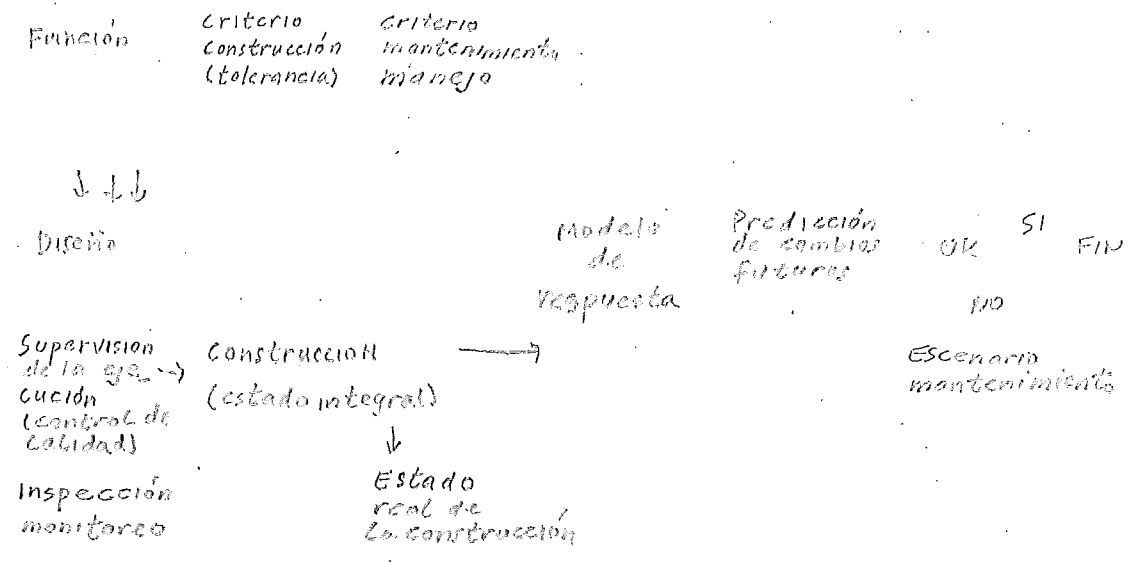 Función
criterio
construcción
(tolerancia)
criterio
mantenimiento
manejo
Diseño
Modelo
de
respuesta
Predicción
de cambios
futuros
OK
SI
FIN
NO
Escenario
mantenimiento
Supervision
de la eje
cución
(control de
calidad)
Construcción
(estado integral)
Estado
real de
La construcción
Inspección
monitoreo